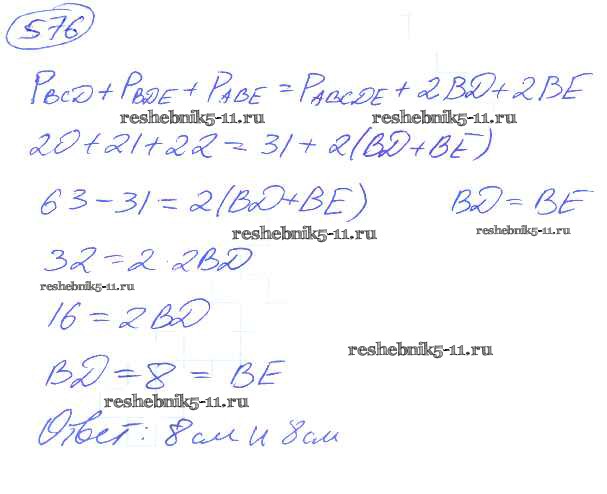 576
P_BCD + P_BDE + P_ABE = P_ABCDE + 2BD + 2BE
reshebnik5-11.ru reshebnik5-11.ru
20 + 21 + 22 = 31 + 2(BD + BE)
63 - 31 = 2(BD + BE) BD = BE
reshebnik5-11.ru reshebnik5-11.ru
32 = 2 · 2BD
reshebnik5-11.ru
16 = 2BD
reshebnik5-11.ru
BD = 8 = BE
reshebnik5-11.ru
Ответ: 8 см и 8 см